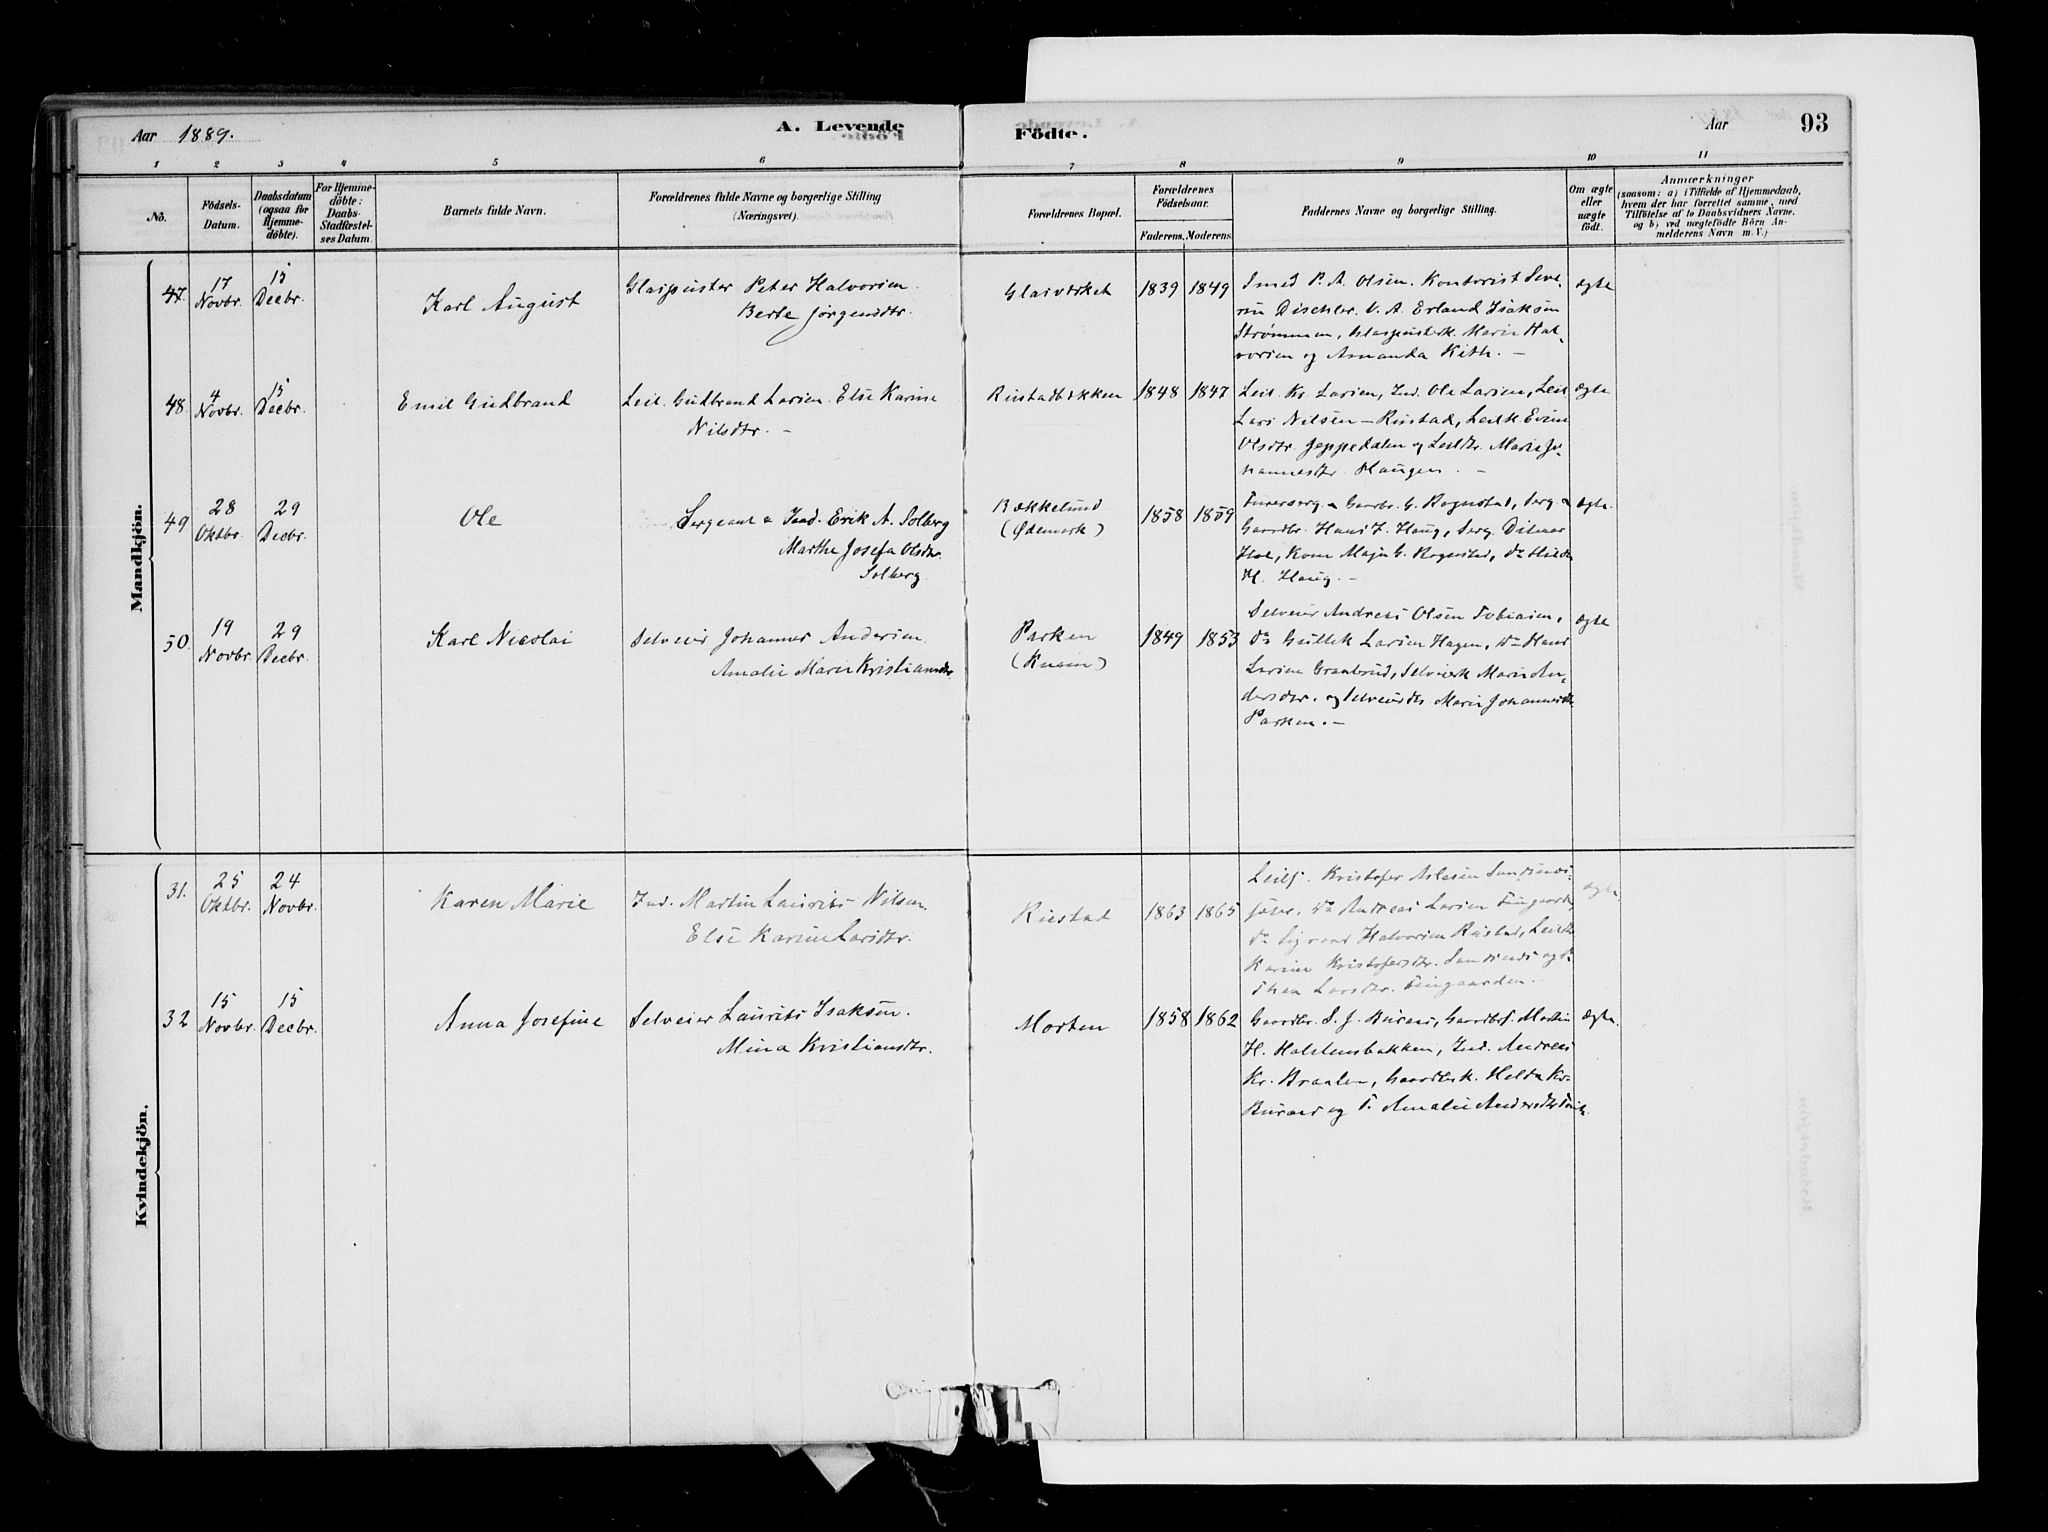 Aar 1889.
A. Levende
Födte.
Aar
93
1 2 3 4 5 6 7 8 9 10 11
No.
Födsels-
Datum.
Daabsdatum
(ogsaa for
Hjemme-
döbte).
For Hjemme-
döbte:
Daabs-
Stadfæstel-
ses Datum.
Barnets fulde Navn.
Forældrenes fulde Navne og borgerlige Stilling
(Næringsvei).
Forældrenes Bopæl.
Forældrenes
Födselsaar.
Faderens. Moderens.
Faddernes Navne og borgerlige Stilling.
Om ægte
eller
uægte
født.
Anmærkninger
(saasom: a) i Tilfælde af Hjemmedaab,
hvem der har forrettet samme, med
Tilföielse af to Daabsvidners Navne.
og b) ved uægtefödte Börn An-
melderens Navn m.V.)
Mandkjön.
47.
17
Novbr.
15
Decbr.
Karl August
Glaspuster Peter Halvorsen.
Berte Jørgensdtr.
Glasværket
1839 1849
Smed P. A. Olsen. Kontorist Seve-
rin Dischler. V. A. Erland Isaksen
Strømmen, Glaspusterk. Marie Hal-
vorsen og Amanda Kith. -
ægte
48.
4
Novbr.
15
Decbr.
Emil Gudbrand
Leil. Gudbrand Larsen. Else Karine
Nilsdtr. -
Rustadbækken
1848 1847
Leil. Kr. Larsen, Ind. Ole Larsen, Leil.
Lars Nilsen - Rustad, Leilk. Evine
Olsdtr. Jeppedalen og Leildtr. Marie Jo-
hannesdtr. Haugen. -
ægte
49
28
Oktbr.
29
Decbr.
Ole
Sergeant & Ind. Erik A. Solberg
Marthe Josefa Olsdtr.
Solberg.
Bækkelund
(Ødemark)
1858 1859
Furerserg. & Gaardbr. G. Rognstad, Serg. &
Gaardbr. Hans J. Haug, Serg. Ditmar
Hol, Kone Maja G. Rognstad, do Hilda
H. Haug. -
ægte.
50.
19
Novbr.
29
Decbr.
Karl Nicolai
Selveier Johannes Andersen.
Amalie Marie Kristiansdtr.
Parken
1849 1853
Selveier Andreas Olsen Tobiasen,
do Gullek Larsen Hagen, do Hans
Larsen Granbrud, Selveierk Marie An-
dersdtr. og Selveierdtr. Marie Johannesdtr.
Parken. -
ægte
Kvindekjön.
31.
25
Oktbr.
24
Novbr.
Karen Marie
Ind. Martin Laurits Nilsen.
Else Karine Larsdtr.
Rustad
1863 1865
Leilf. Kristofer Aslesen
do Andreas Larsen Finngaarden,
do Halvorsen Rustad,
Karine Kristofersdtr.
Larsdtr. Finngaarden. -
ægte
32
15
Novbr.
15
Decbr.
Anna Josefine
Selveier Laurits Isaksen.
Mina Kristiansdtr.
Morten
1858 1862
Gaardbr. S. J. Buraas, Gaardbrf. Martin
H. Holstensbakken, Ind. Andreas
Kr. Braaten, Gaardbrk. Helda Kr.
Buraas og P. Amalie Andersdtr.
ægte.